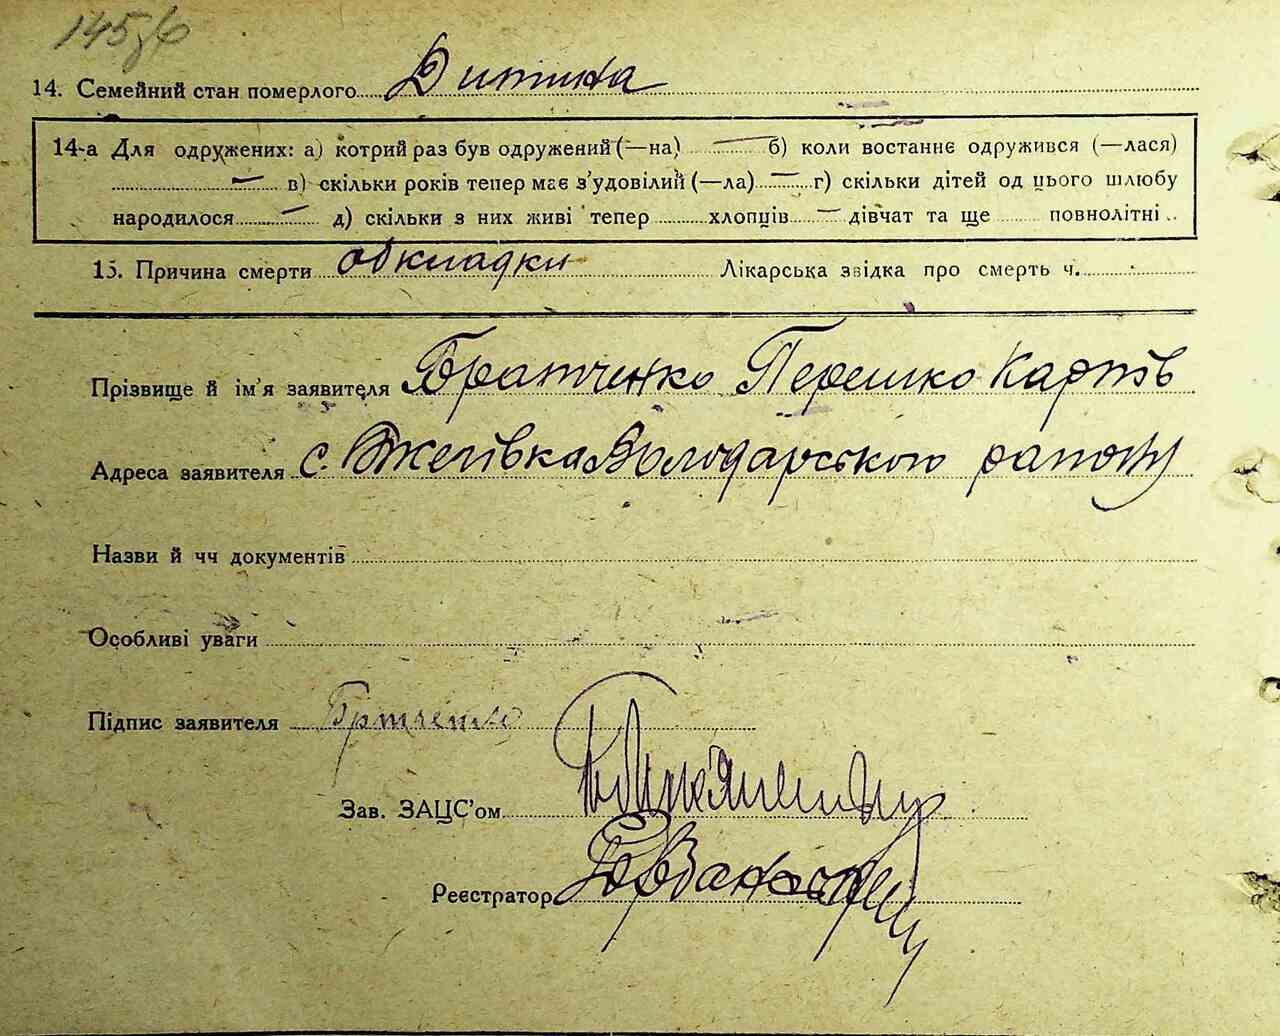 145зв
14. Семейний стан померлого Дитина
14-а Для одружених: а) котрий раз був одружений (—на) — б) коли востаннє одружився (—лася)
— в) скільки років тепер має з'удовілий (—ла) — г) скільки дітей од цього шлюбу
народилося — д) скільки з них живі тепер хлопців — дівчат та ще повнолітні
15. Причина смерти обкладки Лікарська звідка про смерть ч.
Прізвище й ім'я заявителя Братченко Карпів
Адреса заявителя с. Володарського району
Назви й чч документів
Особливі уваги
Підпис заявителя Братченко
Зав. ЗАЦС'ом
Реєстратор